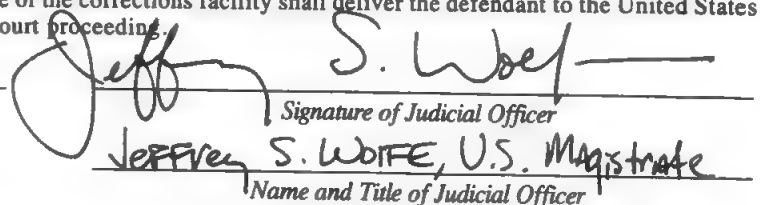 e of the corrections facility shall deliver the defendant to the United States
ourt proceeding.
Jeffrey S. Wolf
Signature of Judicial Officer
JEFFREY S. WOLFE, U.S. MAgistrate
Name and Title of Judicial Officer